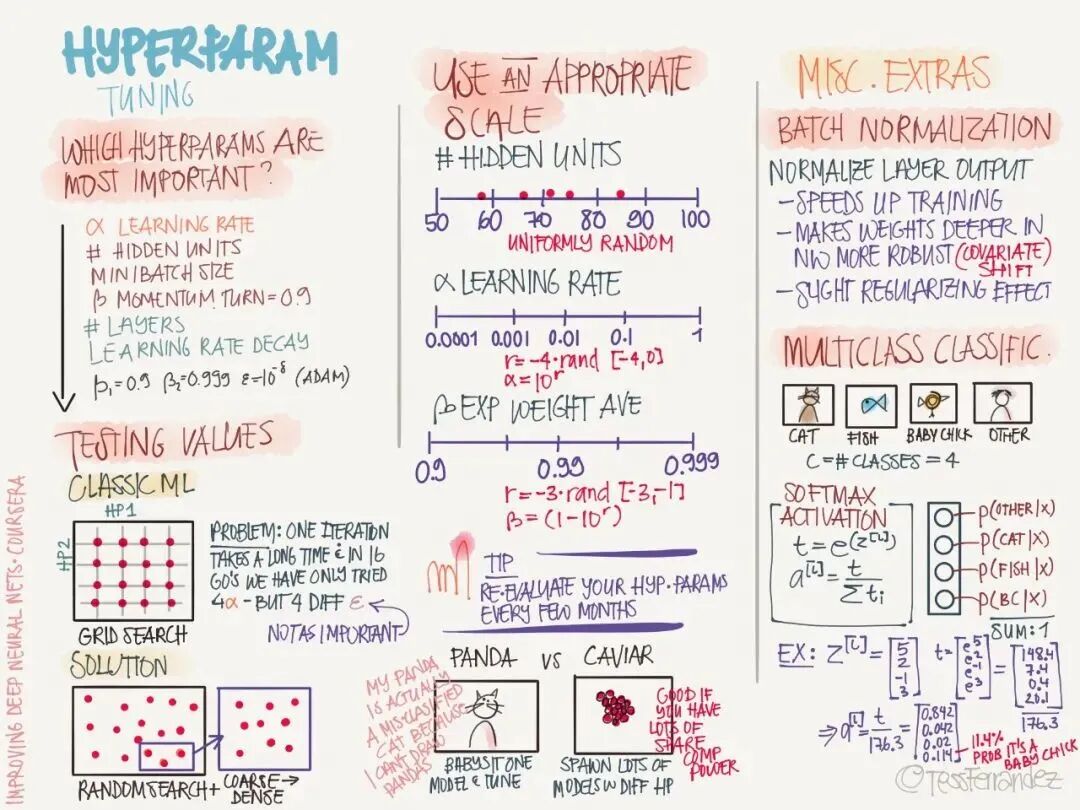 HYPERPARAM
TUNING
WHICH HYPERPARAMS ARE
MOST IMPORTANT?
α LEARNING RATE
# HIDDEN UNITS
MINIBATCH SIZE
β MOMENTUM TURN = 0.9
# LAYERS
LEARNING RATE DECAY
β₁=0.9 β₂=0.999 ε=10⁻⁸ (ADAM)
TESTING VALUES
CLASSIC ML
HP1
HP2
GRID SEARCH
PROBLEM: ONE ITERATION
TAKES A LONG TIME & IN 16
GO'S WE HAVE ONLY TRIED
4α - BUT 4 DIFF ε
NOT AS IMPORTANT
SOLUTION
RANDOM SEARCH + COARSE →
DENSE
IMPROVING DEEP NEURAL NETS · COURSERA
USE AN APPROPRIATE
SCALE
# HIDDEN UNITS
50 60 70 80 90 100
UNIFORMLY RANDOM
α LEARNING RATE
0.0001 0.001 0.01 0.1 1
r=-4·rand [-4,0]
α=10^r
β EXP WEIGHT AVE
0.9 0.99 0.999
r=-3·rand [-3,-1]
β=(1-10^r)
TIP
RE-EVALUATE YOUR HYP.PARAMS
EVERY FEW MONTHS
PANDA VS CAVIAR
MY PANDA
IS ACTUALLY
A MISCLASSIFIED
CAT BECAUSE
I CANT DRAW
PANDAS
BABYSIT ONE
MODEL & TUNE
GOOD IF
YOU HAVE
LOTS OF
SHARE
COMP
POWER
SPAWN LOTS OF
MODELS W DIFF HP
MISC. EXTRAS
BATCH NORMALIZATION
NORMALIZE LAYER OUTPUT
- SPEEDS UP TRAINING
- MAKES WEIGHTS DEEPER IN
NW MORE ROBUST (COVARIATE)
SHIFT
- SLIGHT REGULARIZING EFFECT
MULTICLASS CLASSIFIC.
CAT FISH BABY CHICK OTHER
C = # CLASSES = 4
SOFTMAX
ACTIVATION
t = e^(z^[L])
a^[L] = t / Σ ti
P(OTHER|X)
P(CAT|X)
P(FISH|X)
P(BC|X)
SUM: 1
EX: Z^[L] = [5 2 -1 3] t = [e^5 e^2 e^-1 e^3] = [148.4 7.4 0.4 20.1]
176.3
⇒ a^[L] = t / 176.3 = [0.842 0.042 0.02 0.114]
11.4%
PROB IT'S A
BABY CHICK
©TessFerrandez